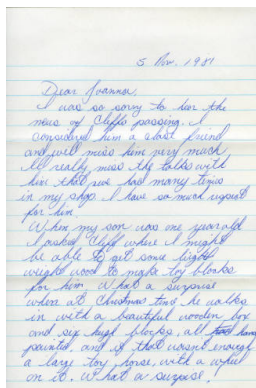 5 Nov. 1981
Dear Joanna,
I was so sorry to hear the
news of Cliff's passing. I
considered him a close friend
and will miss him very much.
I'll really miss the talks with
him that we had many times
in my shop. I have so much respect
for him.
When my son was one year old
I asked Cliff where I might
be able to get some light
weight wood to make toy blocks
for him. What a surprise
when at Christmas time he walks
in with a beautiful wooden box
and six huge blocks, all hand
painted, and if that wasn't enough
a large toy horse, with a wheel
on it. What a surprise!